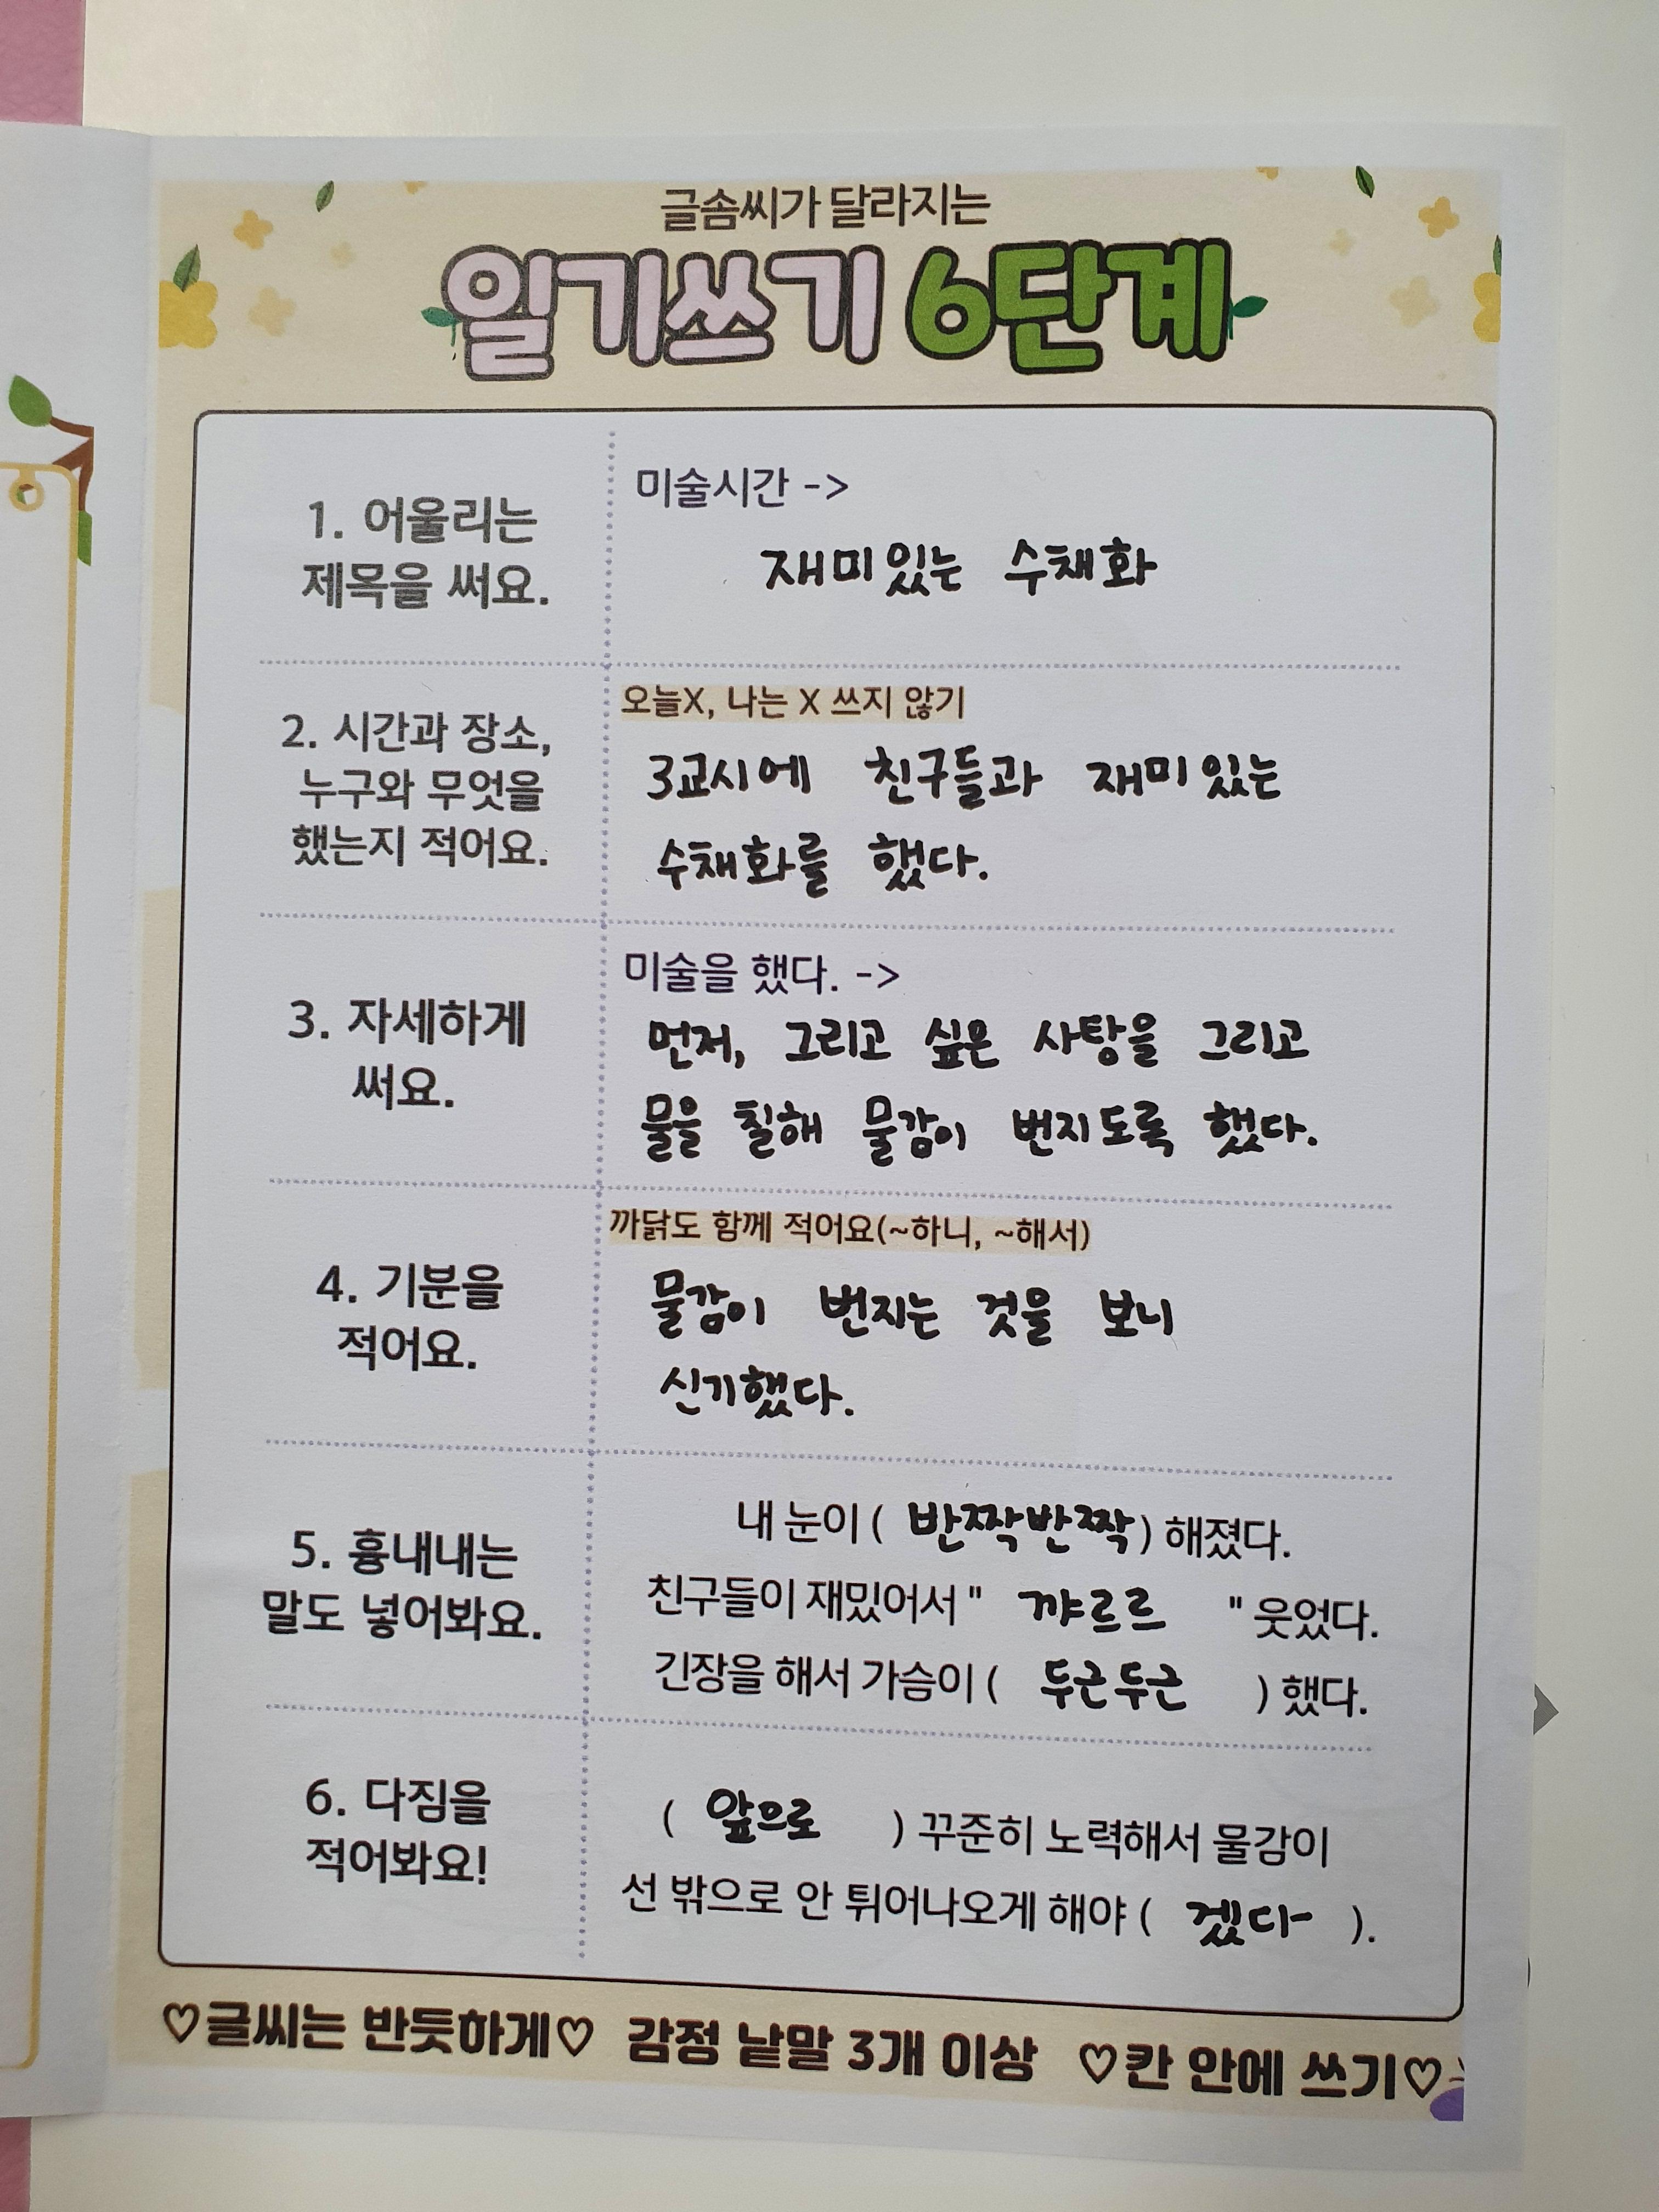 글솜씨가 달라지는
일기쓰기 6단계
1. 어울리는
제목을 써요.
미술시간 ->
재미있는 수채화
2. 시간과 장소,
누구와 무엇을
했는지 적어요.
오늘X, 나는 X 쓰지 않기
3교시에 친구들과 재미있는
수채화를 했다.
3. 자세하게
써요.
미술을 했다. ->
먼저, 그리고 싶은 사탕을 그리고
물을 칠해 물감이 번지도록 했다.
4. 기분을
적어요.
까닭도 함께 적어요(~하니, ~해서)
물감이 번지는 것을 보니
신기했다.
5. 흉내내는
말도 넣어봐요.
내 눈이 ( 반짝반짝 ) 해졌다.
친구들이 재밌어서 " 꺄르르 " 웃었다.
긴장을 해서 가슴이 ( 두근두근 ) 했다.
6. 다짐을
적어봐요!
( 앞으로 ) 꾸준히 노력해서 물감이
선 밖으로 안 튀어나오게 해야 ( 겠다 ).
♡글씨는 반듯하게♡ 감정 낱말 3개 이상 ♡칸 안에 쓰기♡